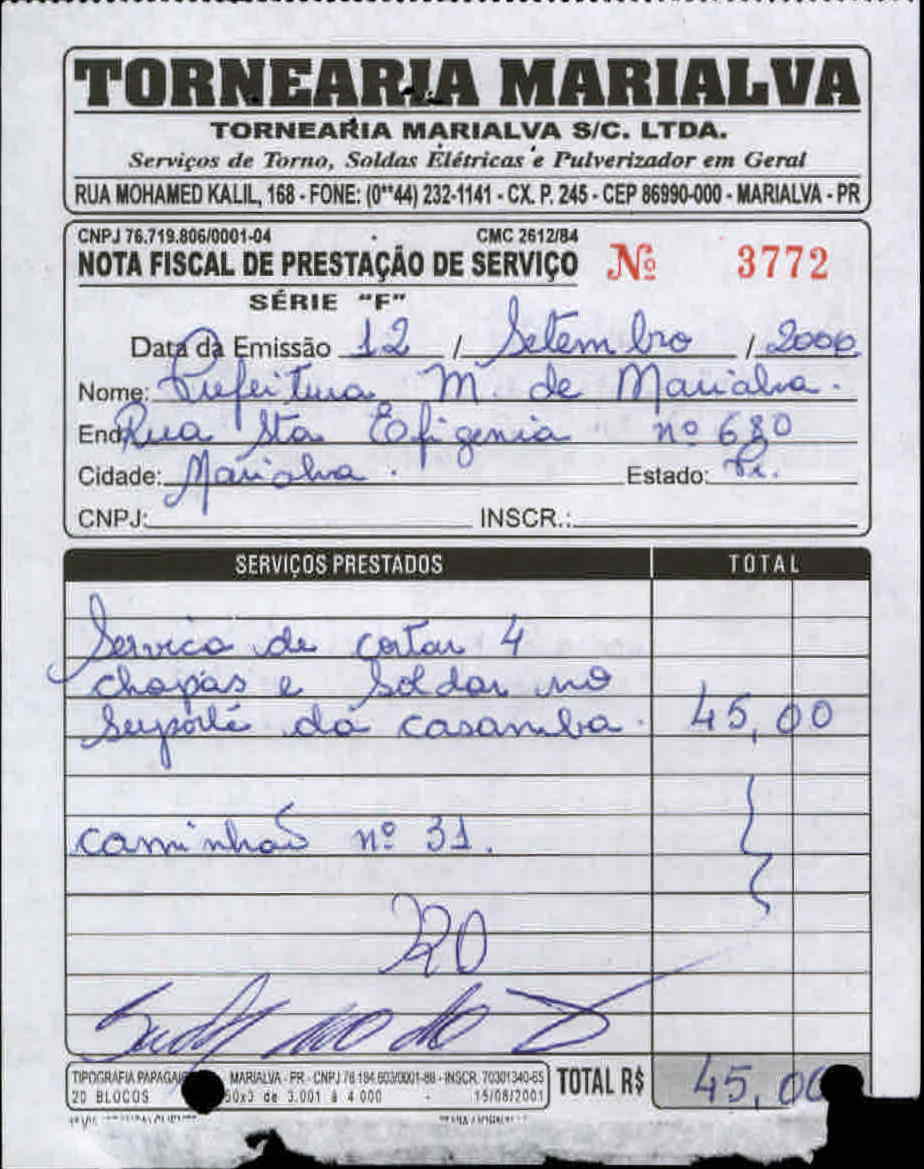 TORNEARIA MARIALVA
TORNEARIA MARIALVA S/C. LTDA.
Serviços de Torno, Soldas Elétricas e Pulverizador em Geral
RUA MOHAMED KALIL, 168 - FONE: (0**44) 232-1141 - CX. P. 245 - CEP 86990-000 - MARIALVA - PR
CNPJ 76.719.806/0001-04 CMC 2612/84
NOTA FISCAL DE PRESTAÇÃO DE SERVIÇO Nº 3772
SÉRIE "F"
Data da Emissão 12 / Setembro / 2000
Nome: Prefeitura M. de Marialva.
End. Rua Sta Efigenia nº 680
Cidade: Marialva. Estado: Pr.
CNPJ: INSCR.:
SERVIÇOS PRESTADOS TOTAL
Servico de cortar 4
chapas e soldar no
suporte da casamba. 45,00
caminhão nº 31.
220
TIPOGRAFIA MARIALVA - PR - CNPJ 76 194 603/0001-88 - INSCR. 70301340-65 TOTAL R$ 45,00
20 BLOCOS 50x3 de 3.001 à 4 000 - 15/08/2001